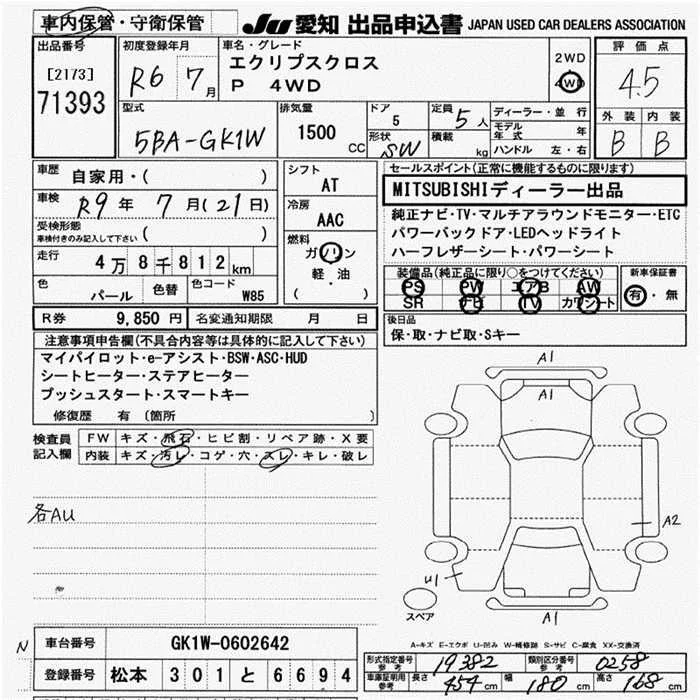 車内保管・守衛保管
JU 愛知 出品申込書 JAPAN USED CAR DEALERS ASSOCIATION
出品番号
[2173]
71393
初度登録年月
R6 7月
車名・グレード
エクリプスクロス
P 4WD
2WD
4WD
評価点
4.5
外装 内装
B B
型式
5BA-GK1W
排気量
1500
CC
ドア
5
形状
SW
定員
5人
積載
kg
ディーラー・並行
モデル年式 年
ハンドル 左・右
車歴
自家用・( )
車検
R9年 7月(21日)
受検形態
車検付きのみ記入して下さい ( )
走行
4万8千812km
色
パール
色替
色コード
W85
シフト
AT
冷房
AAC
燃料
ガソリン
軽・油
( )
R券 9,850円 名変通知期限 月 日
セールスポイント(正常に機能するものに限ります)
MITSUBISHIディーラー出品
純正ナビ・TV・マルチアラウンドモニター・ETC
パワーバックドア・LEDヘッドライト
ハーフレザーシート・パワーシート
装備品(純正品に限り○をつけてください)
PS PW エアB AW
SR ナビ TV カワシート
新車保証書
有・無
後日品
保・取・ナビ取・Sキー
注意事項申告欄(不具合内容等は具体的に記入して下さい)
マイパイロット・e-アシスト・BSW・ASC・HUD
シートヒーター・ステアヒーター
プッシュスタート・スマートキー
修復歴 有 〔箇所 〕
検査員記入欄
FW キズ・飛石・ヒビ割・リペア跡・X要
内装 キズ・汚レ・コゲ・穴・スレ・キレ・破レ
各AU
A1
A1
A2
U1
A1
スペア
A-キズ E-エクボ U-凹み W-補修跡 S-サビ C-腐食 XX-交換済
N
車台番号 GK1W-0602642
登録番号 松本 301 と 6694
形式指定番号 参考 19382 類別区分番号 参考 0258
車庫証明用 参考 長さ 454 cm 幅 180 cm 高さ 168 cm